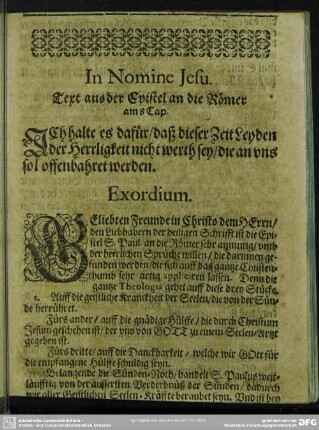 In Nomine Jesu.
Text aus der Epistel an die Römer
am 8 Cap.
ICh halte es dafür/ daß dieser Zeit Leyden
der Herrligkeit nicht werth sey/ die an vns
sol offenbahret werden.
Exordium.
GEliebten Freunde in Christo dem HErrn/
den Liebhabern der heiligen Schrifft ist die Epi-
stel S. Paul an die Römer sehr anmutig/ vmb
der herrlichen Sprüche willen/ die darinnen ge-
funden werden/ die sich auff das gantze Christen-
thumb sehr artig appliciren lassen. Denn die
gantze Theologia gehet auff diese drey Stücke.
1. Auff die geistliche Kranckheit der Seelen/ die von der Sün-
de herrühret.
Fürs ander/ auff die gnädige Hülffe/ die durch Christum
Jesum geschehen ist/ der vns von GOTT zu einem Seelen-Artzt
gegeben ist.
Fürs dritte/ auff die Danckbarkeit/ welche wir GOtt für
die empfangene Hülffe schuldig seyn.
Belangende die Sünden-Noth/ handelt S. Paulus weit-
läufftig von der äussersten Verderbnüß der Sünden/ dadurch
wir aller Geistlichen Seelen-Kräffte beraubet seyn. Und ist hen